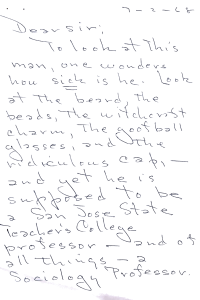 7-2-68
Dear sir;
To look at this
man, one wonders
how sick is he. Look
at the beard, the
beads, the witchcraft
charm, the goofball
glasses, and the
ridiculous cap, —
and yet he is
supposed to be
a San Jose State
Teachers College
professor — and of
all things — a
Sociology Professor.